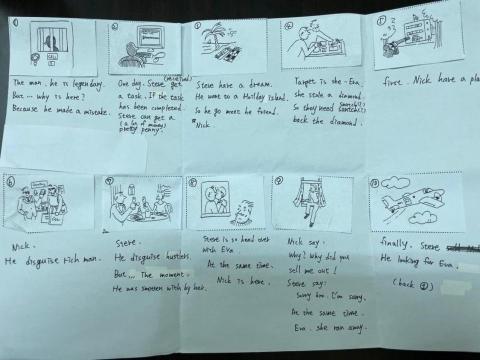 ①
The man, he is legendary.
But ... why is here?
Because he made a mistake.
②
One day, Steve get
a task. If the task
has been completed.
Steve can get a
(a lot of money)
pretty penny.
③
Steve have a dream.
He want to a Holiday island.
So he go meet he friend.
Nick.
④
Target is she - Eva.
she stole a diamond
So they need
back the diamond.
⑤
first. Nick have a pla
⑥
Nick.
He disguise rich man.
⑦
Steve.
He disguise hustlers.
But ... The moment.
He was smitten with by her.
⑧
Steve is so head over
with Eva
At the same time.
Nick is here.
⑨
Nick say:
Why? Why did you
sell me out!
Steve say:
Sorry bro. I'm sorry.
At the same time.
Eva. she ran away.
⑩
finally. Steve
He looking for Eva.
(back ①)